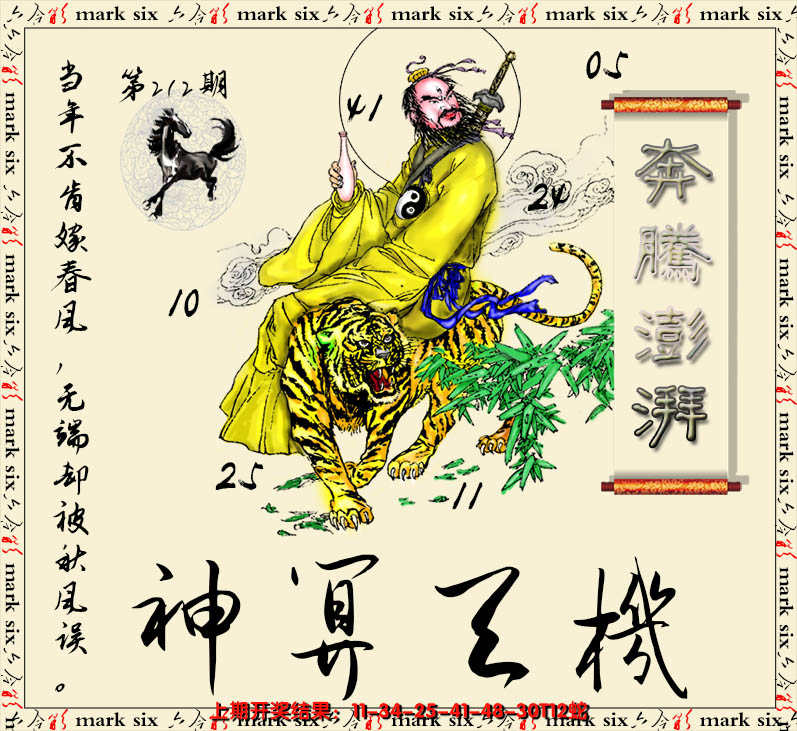 六合彩 mark six 六合彩 mark six 六合彩 mark six 六合彩 mark six 六合彩 mark six
第212期
05
41
24
10
25
11
奔騰澎湃
当年不肯嫁春风,无端却被秋风误。
神算天機
上期开奖结果：11-34-25-41-48-30T12蛇